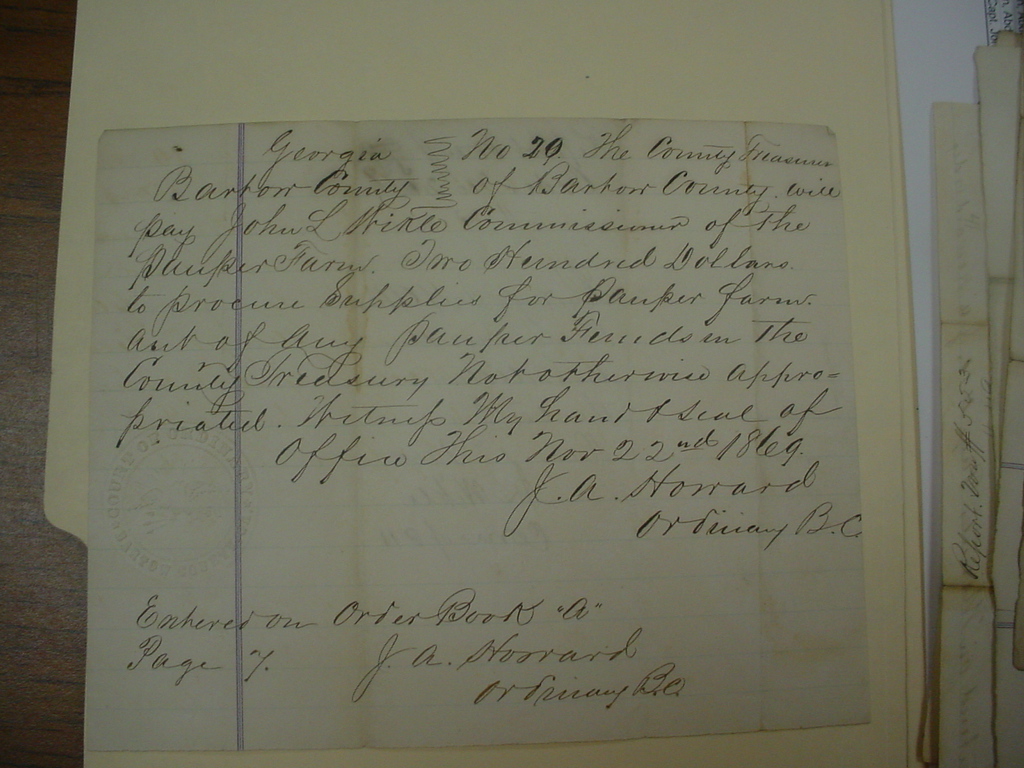 Georgia No 29. The County Treasurer
Bartow County of Bartow County. will
pay John L Wikle Commissioner of the
Pauper Farm. Two Hundred Dollars.
to procure Supplies for Pauper farm.
out of any Pauper Funds in the
County Treasury Not otherwise appro=
priated. Witness My hand & seal of
Office This Nov 22nd 1869.
J. A. Howard
Ordinary B.C.
Entered on Order Book "A"
Page 7. J. A. Howard
Ordinary B.C.
Report.